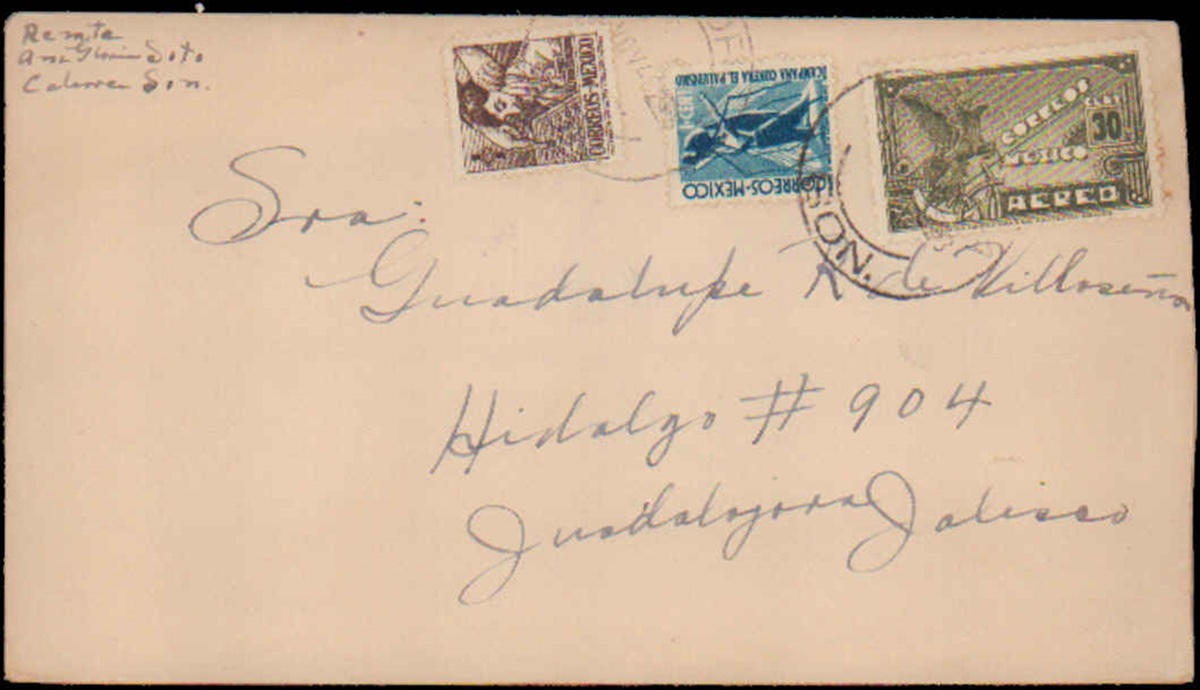 Remte
Ana Gloria Soto
Caborca Son.
CORREOS-MEXICO
CAMPAÑA CONTRA EL PALUDISMO
CORREOS-MEXICO
CORREOS
MEXICO
30
AEREO
SON.
Sra.
Guadalupe R. de Villaseñor
Hidalgo # 904
Guadalajara Jalisco